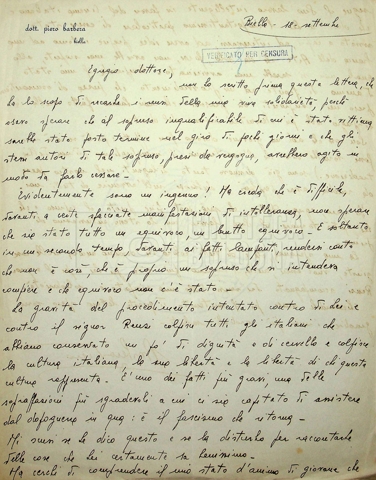 dott. piero barbera
biella
Biella - 18 - settembre
VERIFICATO PER CENSURA
Egregio dottore,
non ho scritto prima questa lettera, che
ha lo scopo di recarle i sensi della mia viva solidarietà, perchè
osavo sperare che al sopruso inqualificabile di cui è stato vittima
sarebbe stato posto termine nel giro di pochi giorni e che gli
stessi autori di tale sopruso, presi da vergogna, avrebbero agito in
modo da farlo cessare -
Evidentemente sono un ingenuo! Ma creda che è difficile,
davanti a certe sfacciate manifestazioni di intolleranza, non sperare
che sia stato tutto un equivoco, un brutto equivoco - E soltanto
in un secondo tempo, davanti ai fatti lampanti, rendersi conto
che non è così, che è proprio un sopruso che si intendeva
compiere e che equivoco non c'è stato -
La gravità del procedimento intentato contro di Lei e
contro il signor Renzi colpisce tutti gli italiani che
abbiano conservato un po' di dignità e di cervello e colpisce
la cultura italiana, la sua libertà e la libertà di chi questa
cultura rappresenta - E' uno dei fatti più gravi, una delle
sopraffazioni più sgradevoli a cui ci sia capitato di assistere
dal dopoguerra in qua: è il fascismo che ritorna -
Mi scusi se le dico questo e se la disturbo per raccontarle
delle cose che Lei certamente sa benissimo -
Ma cerchi di comprendere il mio stato d'animo di giovane che